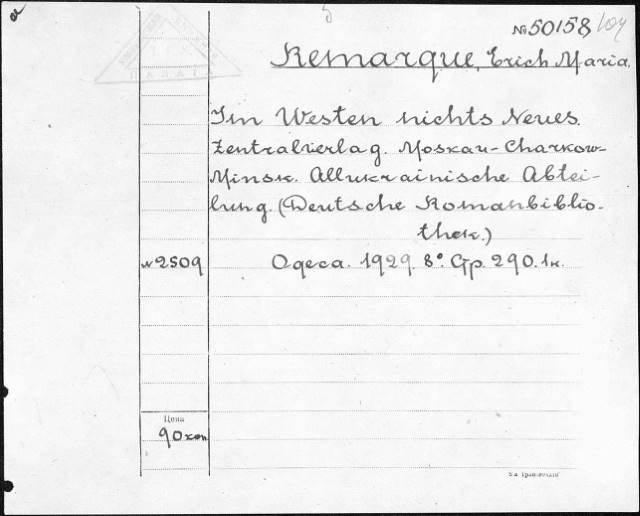 №50158
Remarque, Erich Maria.
Im Westen nichts Neues.
Zentralverlag. Moskau-Charkow-
Minsk. Allukrainische Abtei-
lung. (Deutsche Romanbiblio-
thek.)
№2509
Одеса. 1929. 8°. Ст. 290. 1к.
Цена
90 коп